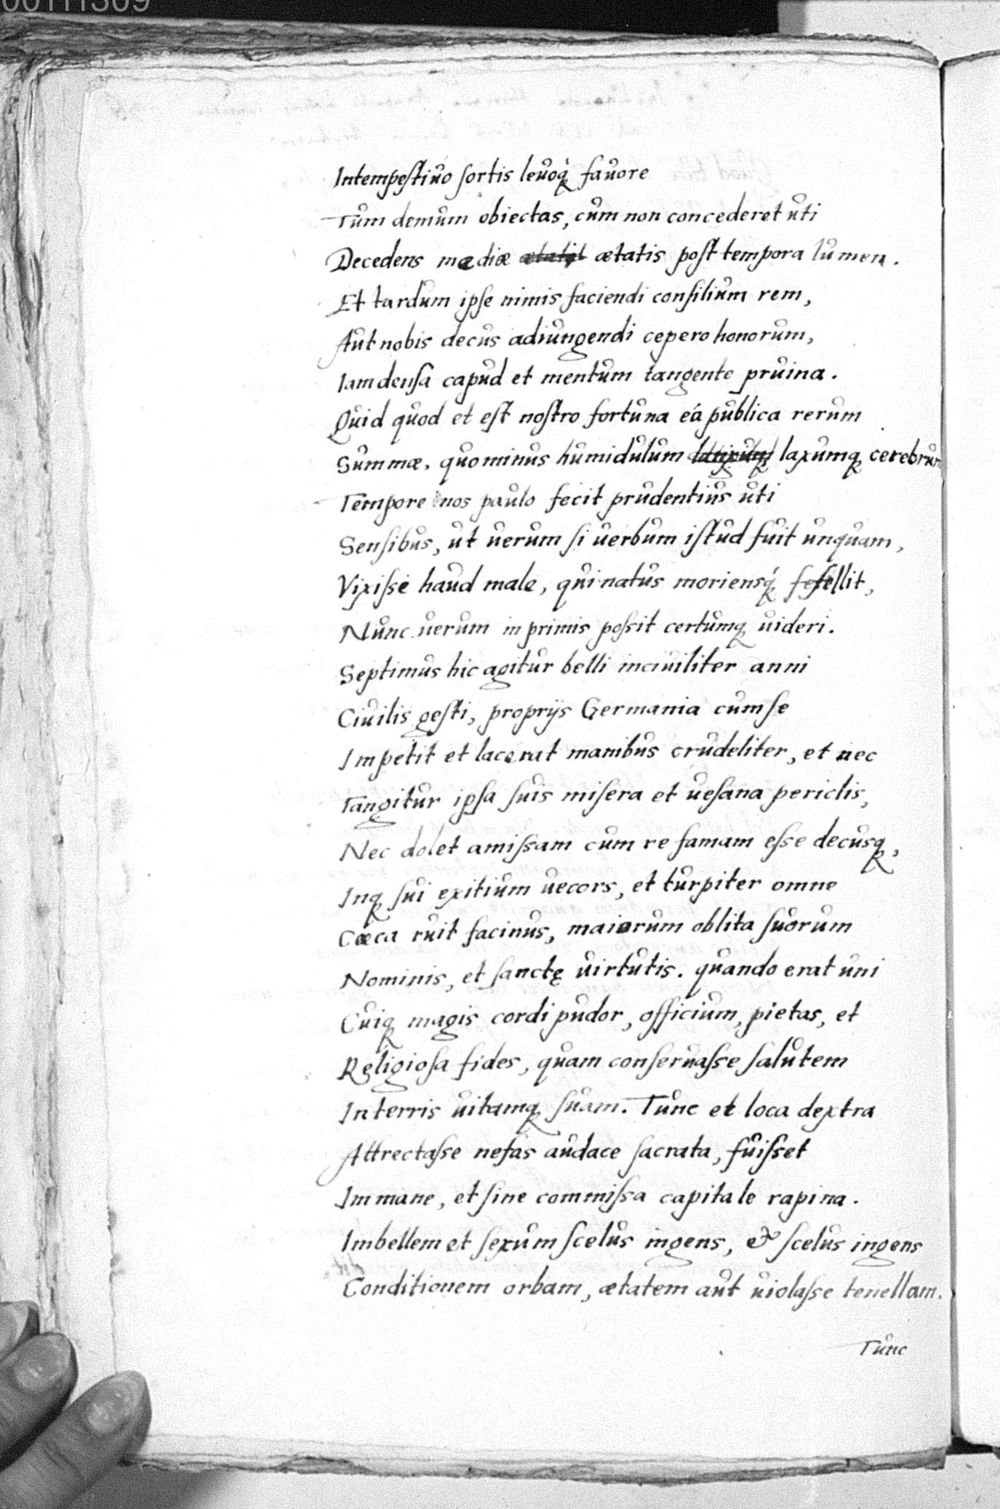 00111309
Intempestiuo sortis leuoq́ fauore
Tum demum obiectas, cum non concederet uti
Decedens mediæ ætatis ætatis post tempora lumen.
Et tardum ipse nimis faciendi consilium rem,
Aut nobis decus adiungendi cepero honorum,
Iam densa capud et mentum tangente pruina.
Quid quod et est nostro fortuna eá publica rerum
Summæ, quo minus humidulum laxumq cerebrum
Tempore nos paulo fecit prudentius uti
Sensibus, ut uerum si uerbum istud fuit unquam,
Vixisse haud male, qui natus moriensq́ fefellit,
Nunc uerum inprimis possit certumq uideri.
Septimus hic agitur belli inciuiliter anni
Ciuilis gesti, proprijs Germania cum se
Impetit et lacerat manibus crudeliter, et nec
Tangitur ipsa suis misera et uesana periclis,
Nec dolet amissam cum re famam esse decusq,
Inq sui exitium uecors, et turpiter omne
Cæca ruit facinus, maiorum oblita suorum
Nominis, et sanctę uirtutis. quando erat uni
Cuiq magis cordi pudor, officium, pietas, et
Religiosa fides, quam conseruasse salutem
In terris uitamq suam. Tunc et loca dextra
Attrectasse nefas audace sacrata, fuisset
Immane, et sine commissa capitale rapina.
Imbellem et sexum scelus ingens, & scelus ingens
Conditionem orbam, ætatem aut uiolasse tenellam.
Tunc